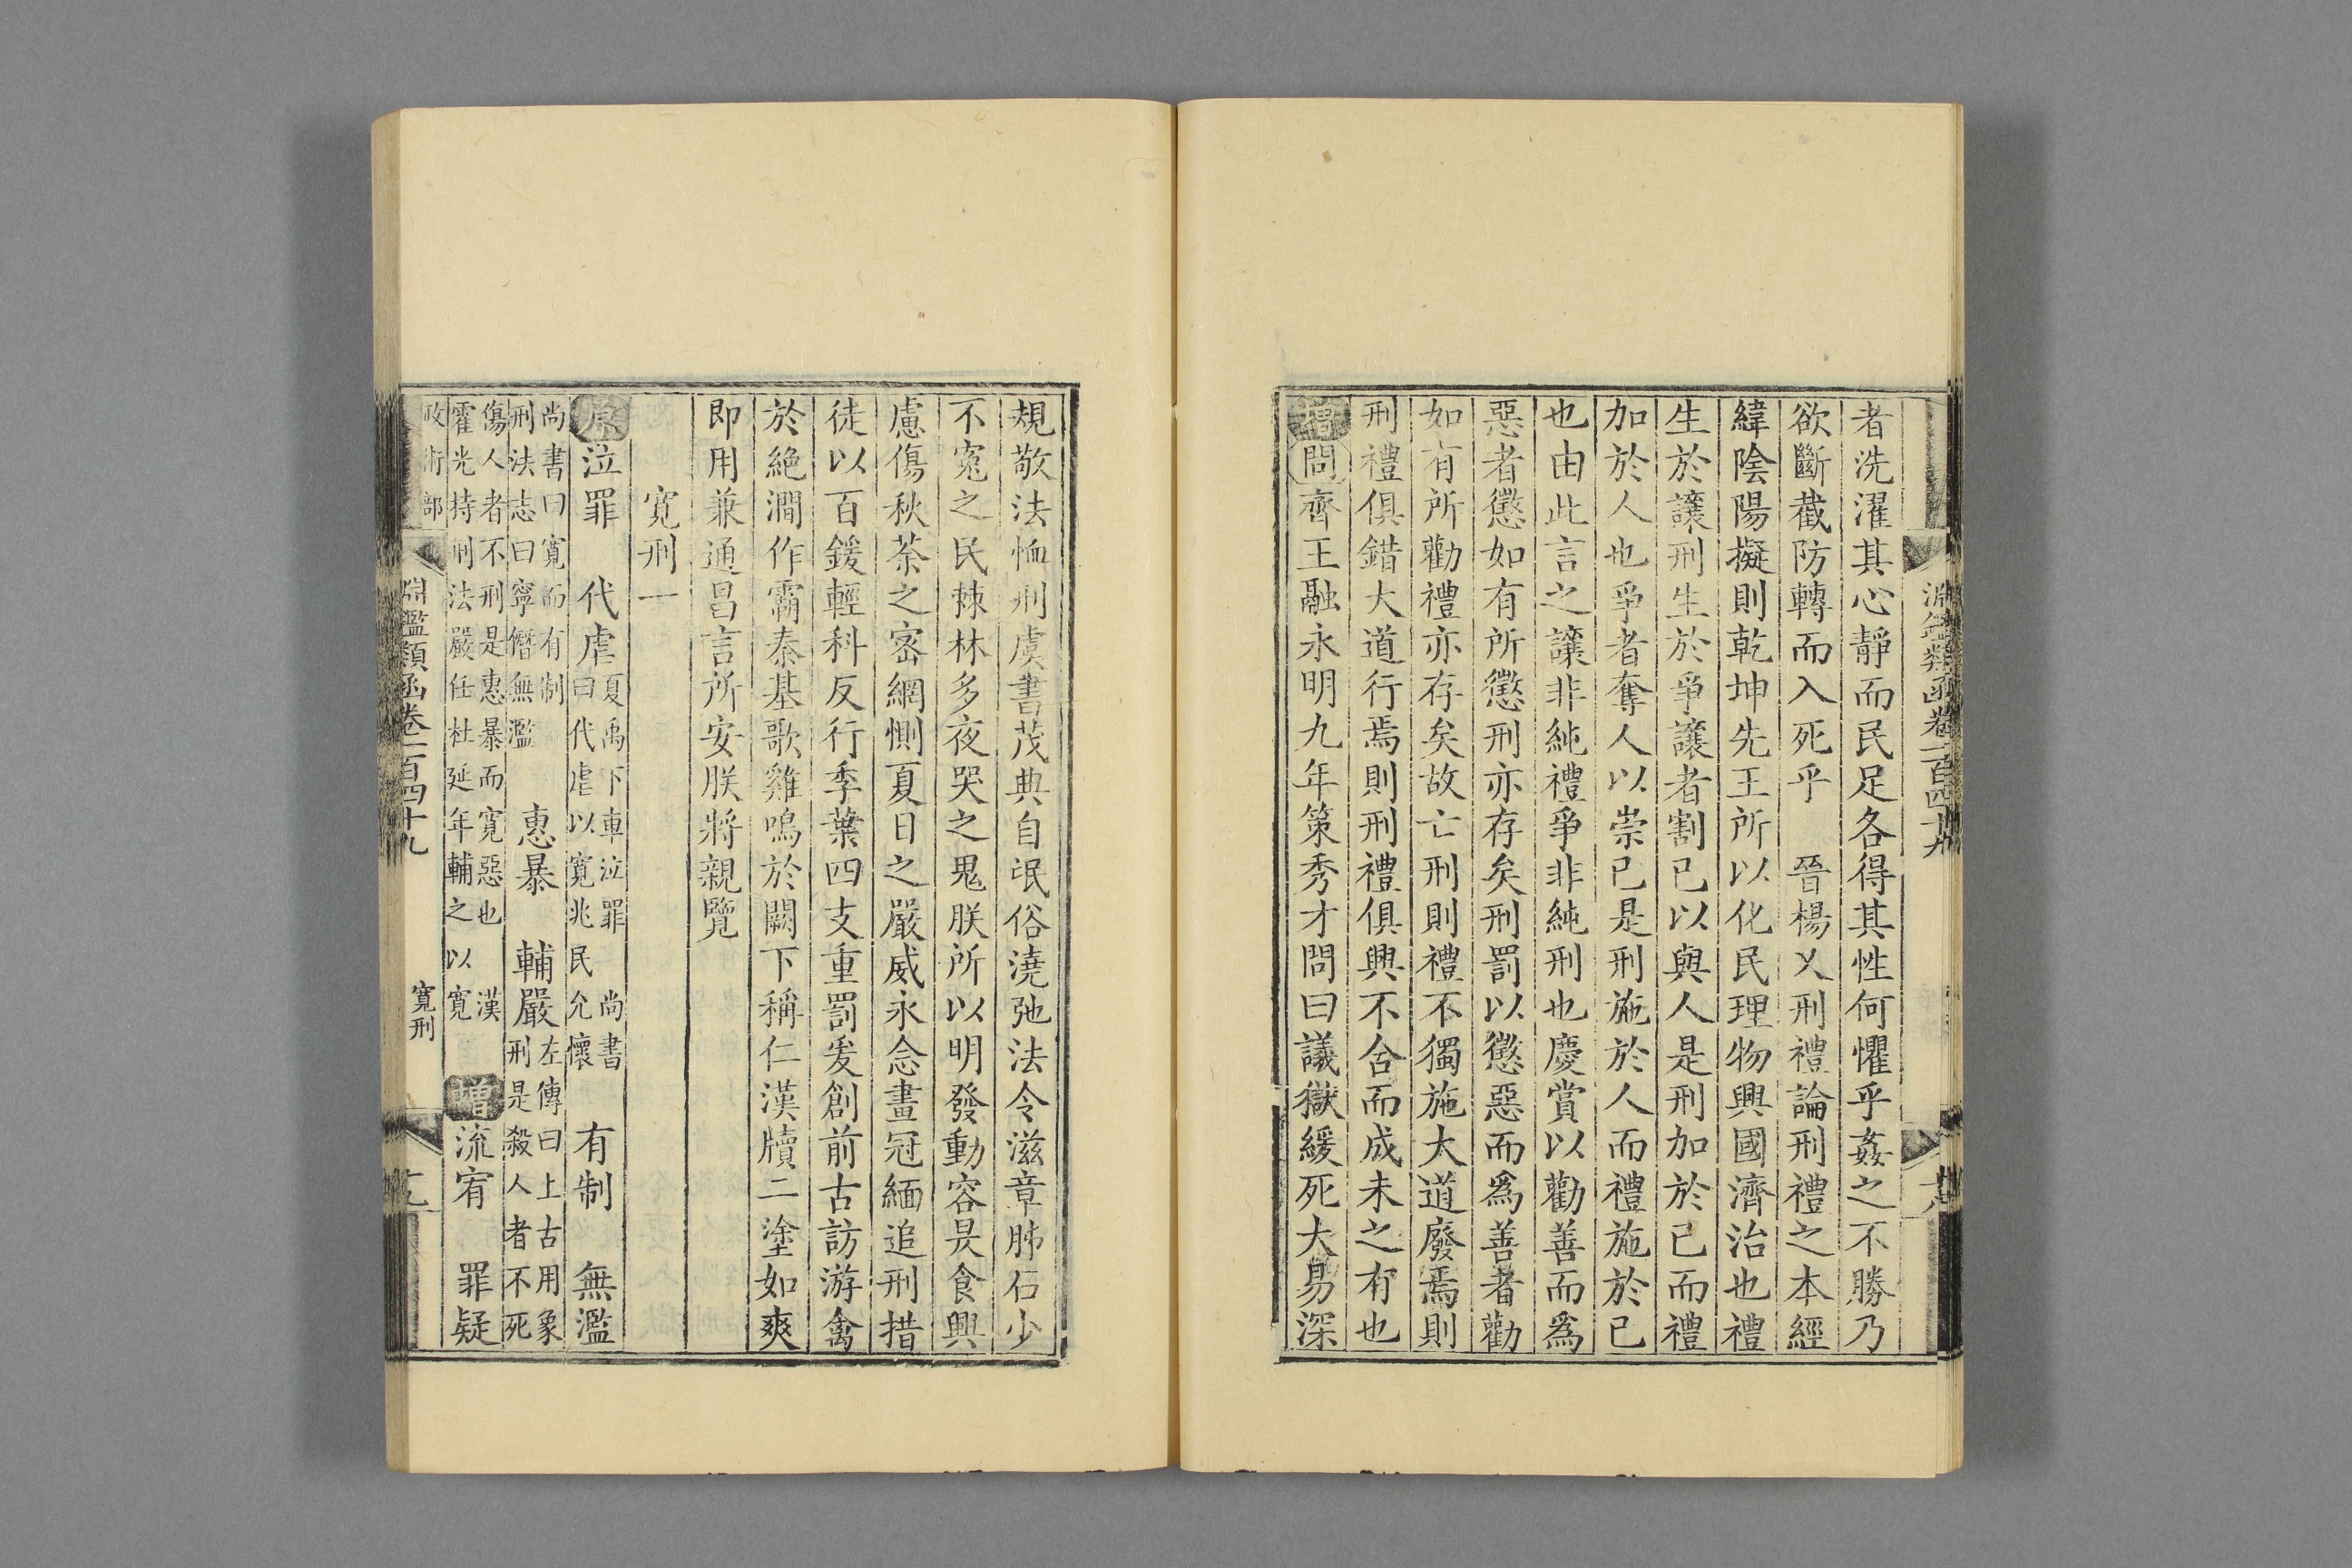 淵鑑類函卷一百四十九
者洗濯其心靜而民足各得其性何懼乎姦之不勝乃
欲斷截防轉而入死乎　晉楊乂刑禮論刑禮之本經
緯陰陽擬則乾坤先王所以化民理物興國濟治也禮
生於讓刑生於爭讓者割己以與人是刑加於己而禮
加於人也爭者奪人以崇己是刑施於人而禮施於己
也由此言之讓非純禮爭非純刑也慶賞以勸善而爲
惡者懲如有所懲刑亦存矣刑罰以懲惡而爲善者勸
如有所勸禮亦存矣故亡刑則禮不獨施大道廢焉則
刑禮俱錯大道行焉則刑禮俱興不合而成未之有也
增問齊王融永明九年策秀才問曰議獄緩死大易深
規敬法恤刑虞書茂典自氓俗澆弛法令滋章肺石少
不冤之民棘林多夜哭之鬼朕所以明發動容昃食興
慮傷秋荼之密網惻夏日之嚴威永念畫冠緬追刑措
徒以百鍰輕科反行季葉四支重罰爰創前古訪游禽
於絶澗作霸秦基歌雞鳴於闕下稱仁漢牘二塗如爽
即用兼通昌言所安朕將親覽
寛刑一
原泣罪　代虐夏禹下車泣罪　尚書
曰代虐以寛兆民允懷　有制　無濫
尚書曰寛而有制
刑法志曰寧僭無濫　惠暴　輔嚴左傳曰上古用象
刑是殺人者不死
傷人者不刑是惠暴而寛惡也　漢
霍光持刑法嚴任杜延年輔之以寛　增流宥　罪疑
政術部　淵鑑類函卷一百四十九　寛刑